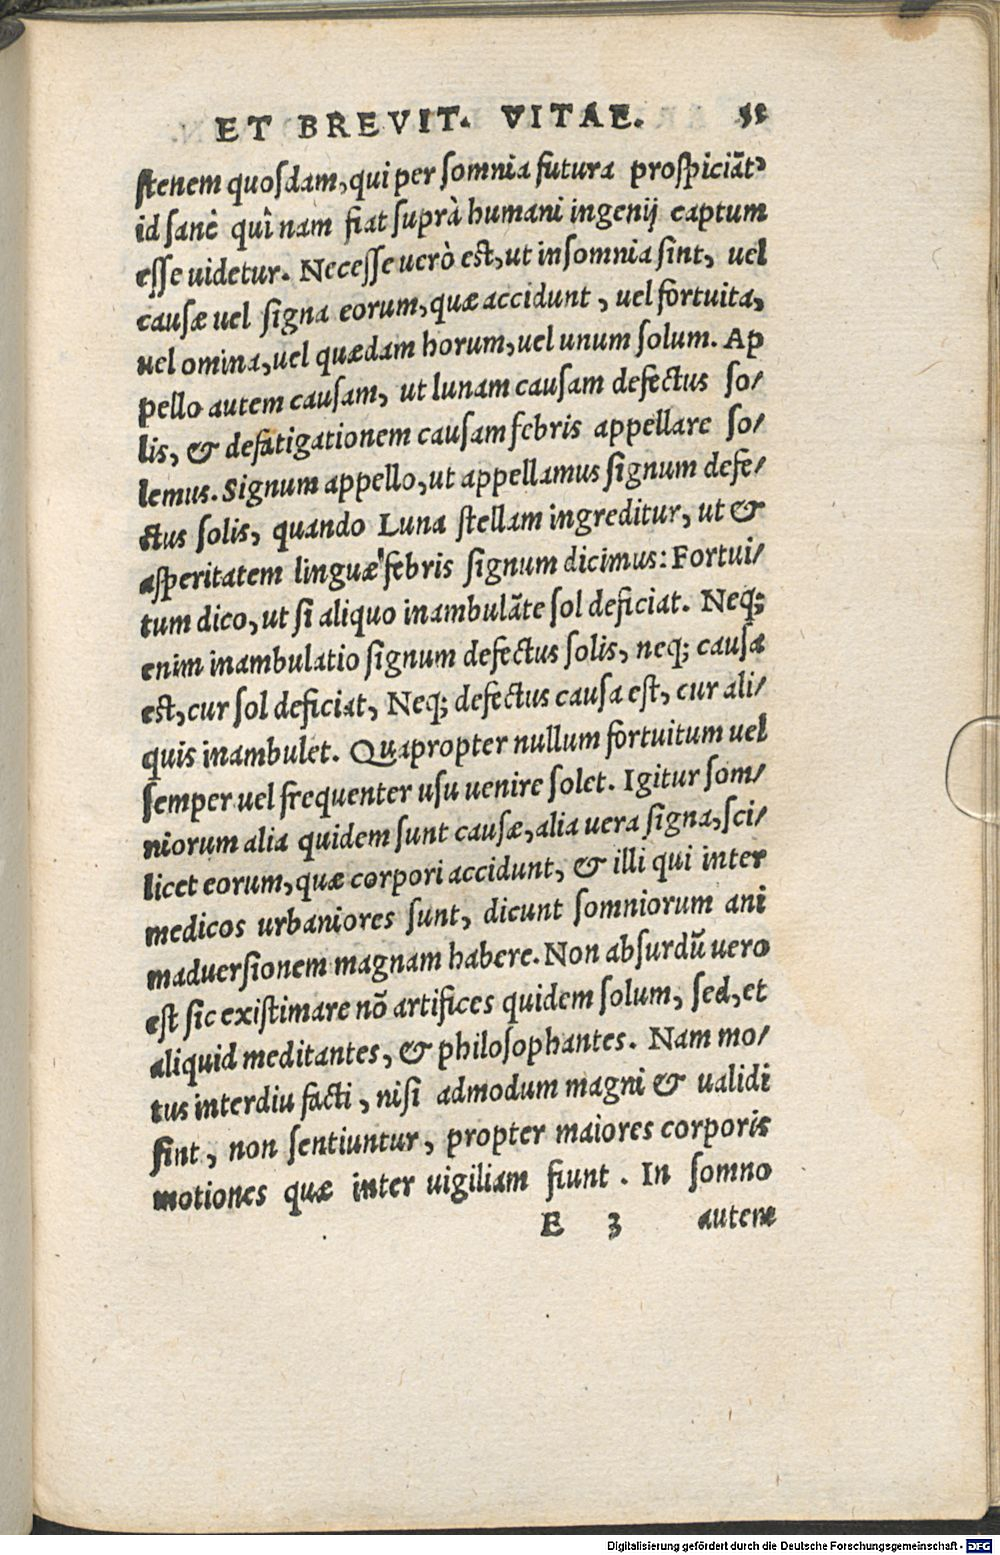 ET BREVIT. VITAE. 55
ſtenem quoſdam, qui per ſomnia futura proſpiciāt
id ſanè quî nam fiat ſuprà humani ingenij captum
eſſe uidetur. Neceſſe uerò eſt, ut inſomnia ſint, uel
cauſæ uel ſigna eorum, quæ accidunt, uel fortuita,
uel omina, uel quædam horum, uel unum ſolum. Ap
pello autem cauſam, ut lunam cauſam defectus ſo/
lis, & defatigationem cauſam febris appellare ſo/
lemus. Signum appello, ut appellamus ſignum defe/
ctus ſolis, quando Luna ſtellam ingreditur, ut &
aſperitatem linguæ febris ſignum dicimus: Fortui/
tum dico, ut ſi aliquo inambulāte ſol deficiat. Neq;
enim inambulatio ſignum defectus ſolis, neq; cauſa
eſt, cur ſol deficiat, Neq; defectus cauſa eſt, cur ali/
quis inambulet. Quapropter nullum fortuitum uel
ſemper uel frequenter uſu uenire ſolet. Igitur ſom/
niorum alia quidem ſunt cauſæ, alia uera ſigna, ſci/
licet eorum, quæ corpori accidunt, & illi qui inter
medicos urbaniores ſunt, dicunt ſomniorum ani
maduerſionem magnam habere. Non abſurdū uero
eſt ſic exiſtimare nō artifices quidem ſolum, ſed, et
aliquid meditantes, & philoſophantes. Nam mo/
tus interdiu facti, niſi admodum magni & ualidi
ſint, non ſentiuntur, propter maiores corporis
motiones quæ inter uigiliam fiunt. In ſomno
E 3 autem
Digitalisierung gefördert durch die Deutsche Forschungsgemeinschaft - DFG